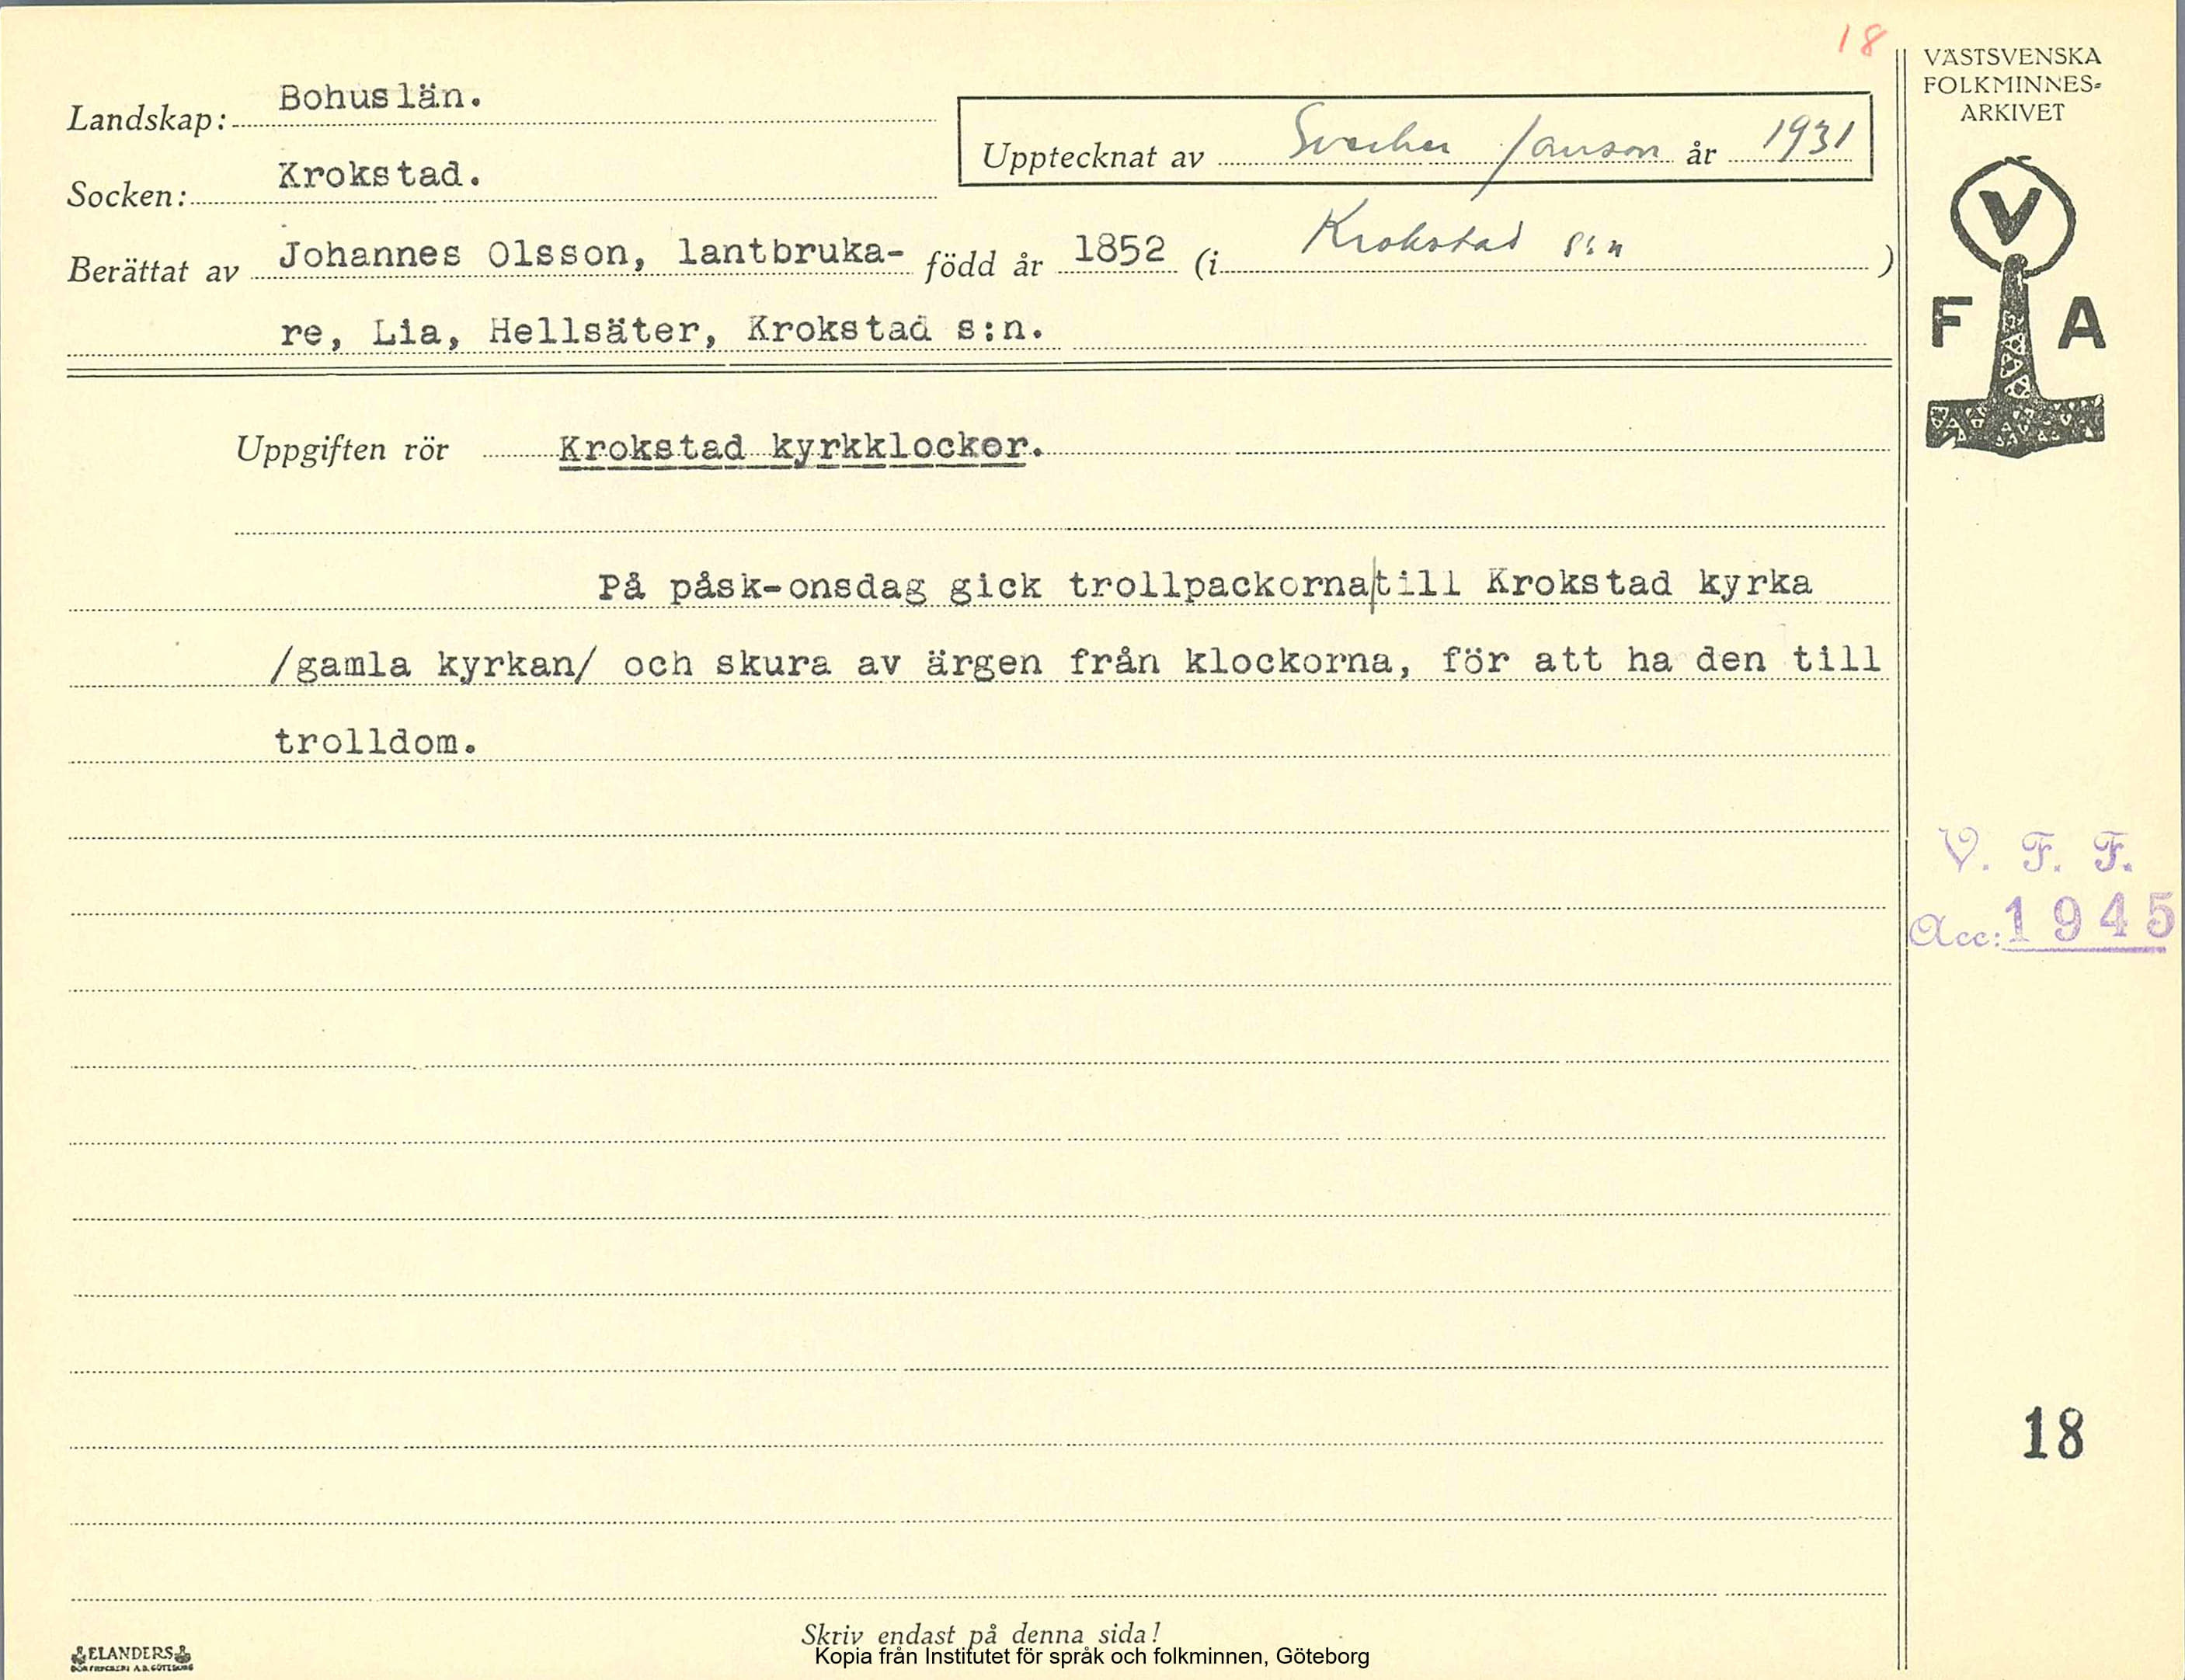 18
VÄSTSVENSKA
FOLKMINNES-
ARKIVET
Landskap: Bohuslän.
Upptecknat av Sverker Janson år 1931
Socken: Krokstad.
Berättat av Johannes Olsson, lantbruka- född år 1852 (i Krokstad s:n )
re, Lia, Hellsäter, Krokstad s:n.
V
F A
Uppgiften rör Krokstad kyrkklockor.
På påsk-onsdag gick trollpackorna|till Krokstad kyrka
/gamla kyrkan/ och skura av ärgen från klockorna, för att ha den till
trolldom.
V. F. F.
Acc: 1945
18
Skriv endast på denna sida!
Kopia från Institutet för språk och folkminnen, Göteborg
ELANDERS